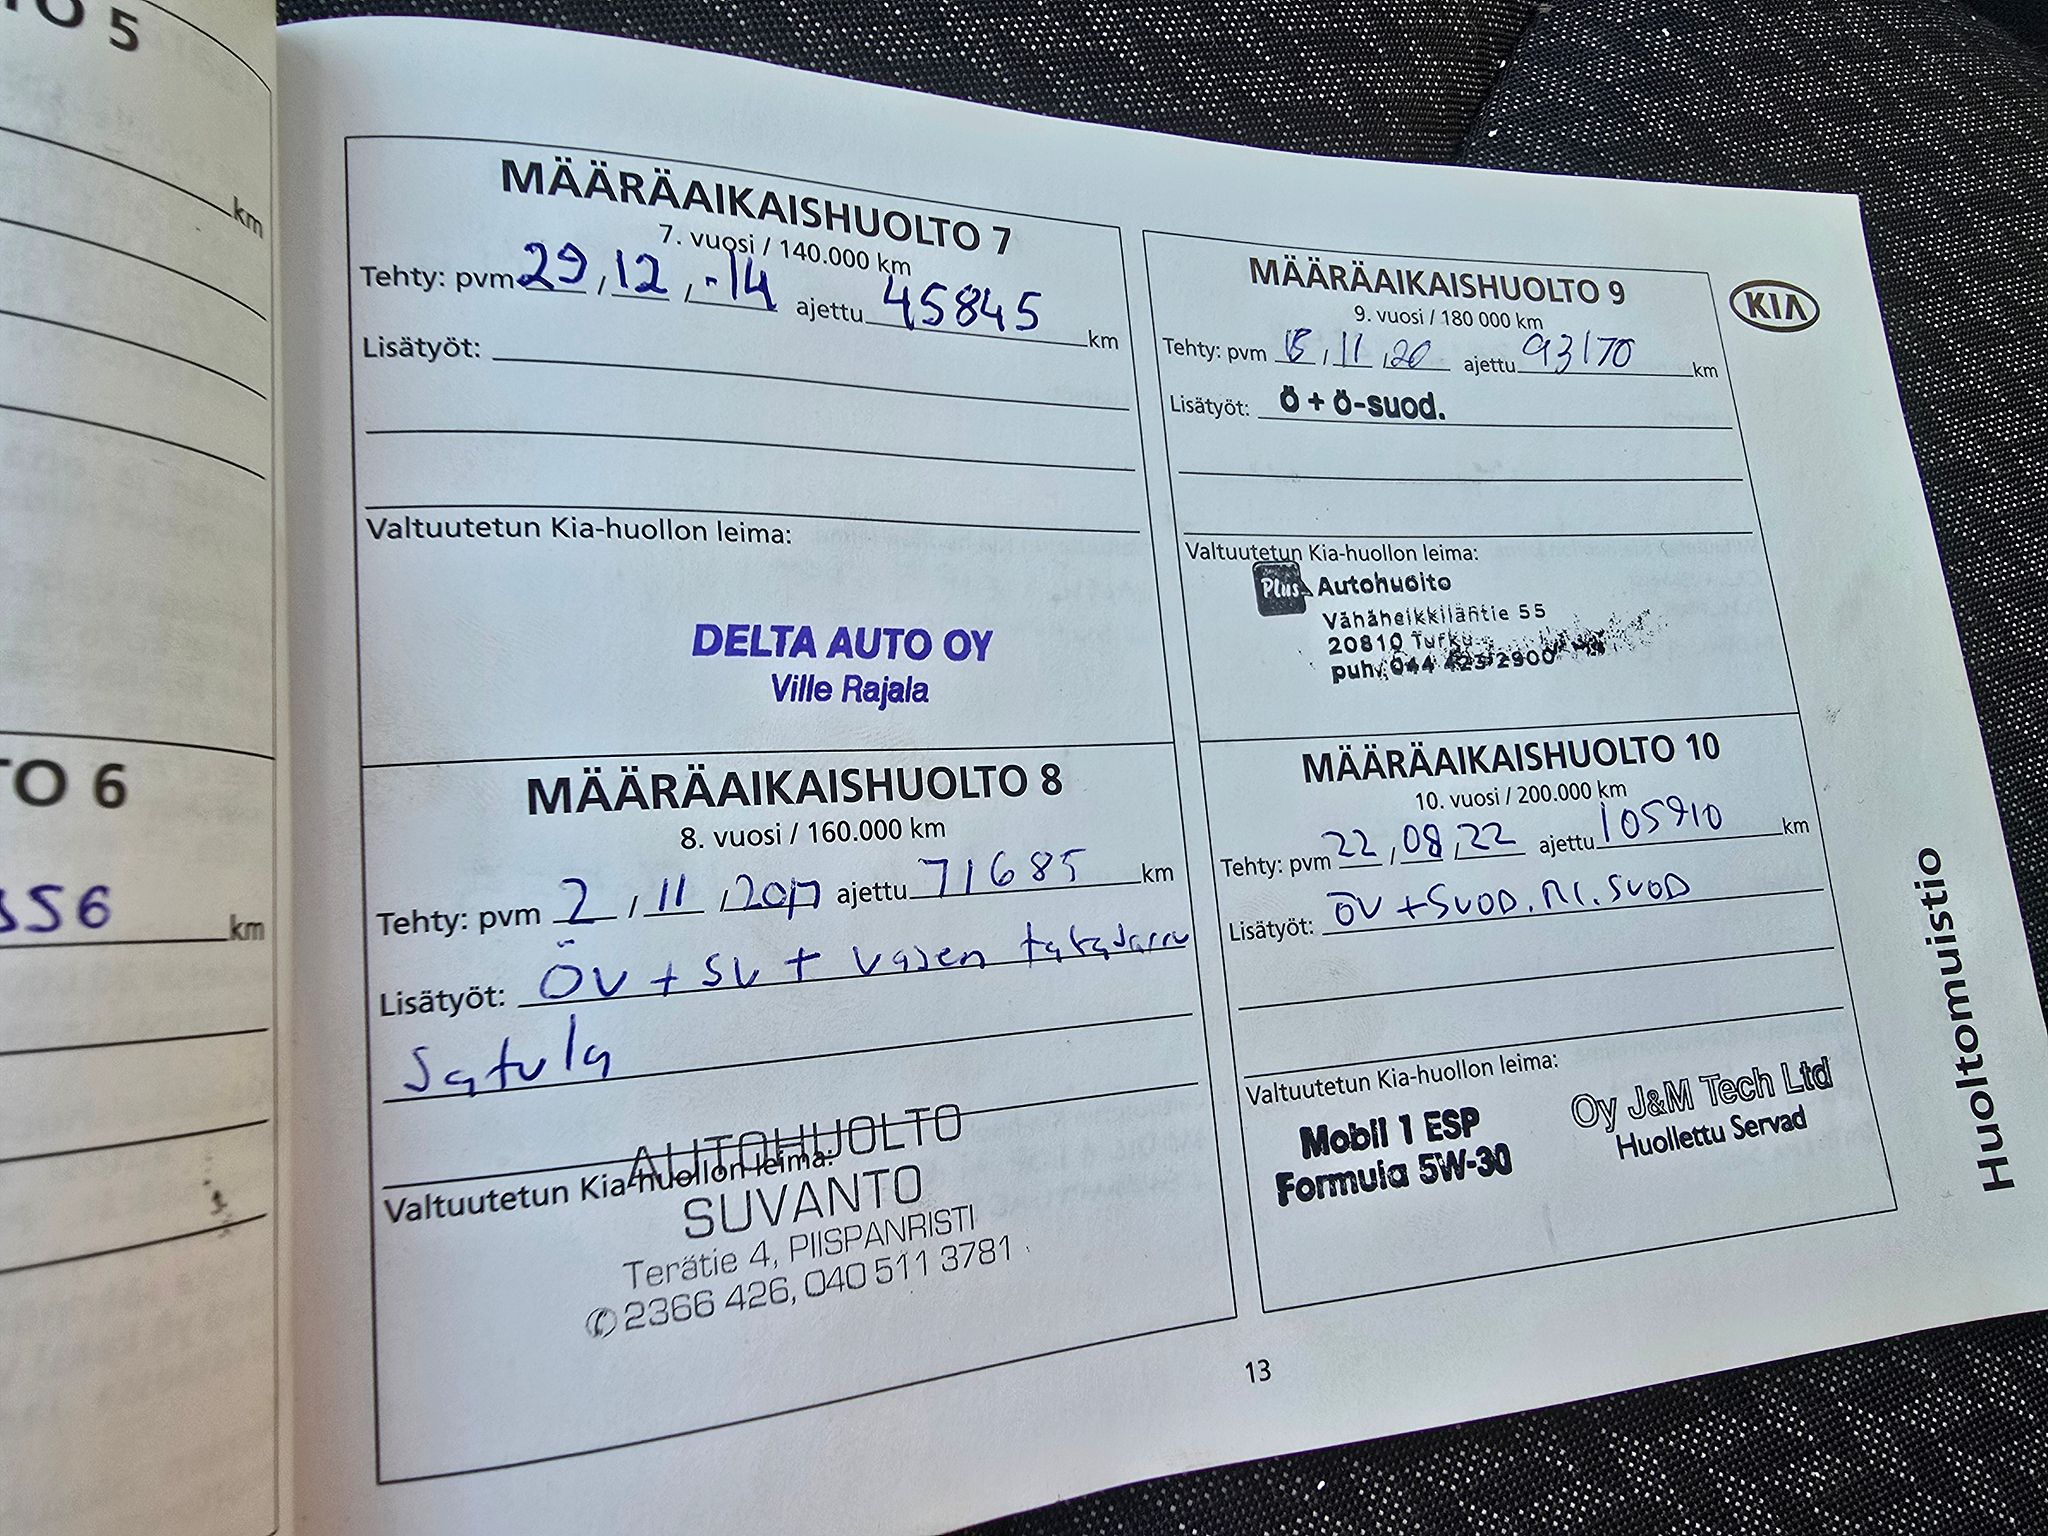 TO 5
km
TO 6
356 km
MÄÄRÄAIKAISHUOLTO 7
7. vuosi / 140.000 km
Tehty: pvm 29 / 12 / -14 ajettu 45845 km
Lisätyöt:
Valtuutetun Kia-huollon leima:
DELTA AUTO OY
Ville Rajala
MÄÄRÄAIKAISHUOLTO 8
8. vuosi / 160.000 km
Tehty: pvm 2 / 11 / 2017 ajettu 71685 km
Lisätyöt: ÖV + SV + vasen takajarru
satula
AUTOHUOLTO
Valtuutetun Kia-huollon leima:
SUVANTO
Terätie 4, PIISPANRISTI
✆ 2366 426, 040 511 3781
MÄÄRÄAIKAISHUOLTO 9
9. vuosi / 180 000 km
Tehty: pvm / 11 / 20 ajettu 93170 km
Lisätyöt: Ö + Ö-suod.
Valtuutetun Kia-huollon leima:
Plus Autohuolto
Vähäheikkiläntie 55
20810 Turku
puh. 044 423 2900
MÄÄRÄAIKAISHUOLTO 10
10. vuosi / 200.000 km
Tehty: pvm 22 / 08 / 22 ajettu 105910 km
Lisätyöt: ÖV + SUOD. RI. SUOD
Valtuutetun Kia-huollon leima:
Mobil 1 ESP
Formula 5W-30
Oy J&M Tech Ltd
Huollettu Servad
KIA
Huoltomuistio
13